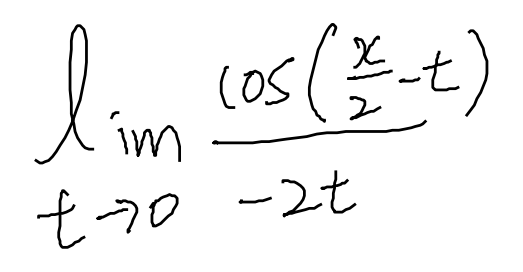 \lim_{t \to 0} \frac{\cos\left(\frac{x}{2}-t\right)}{-2t}